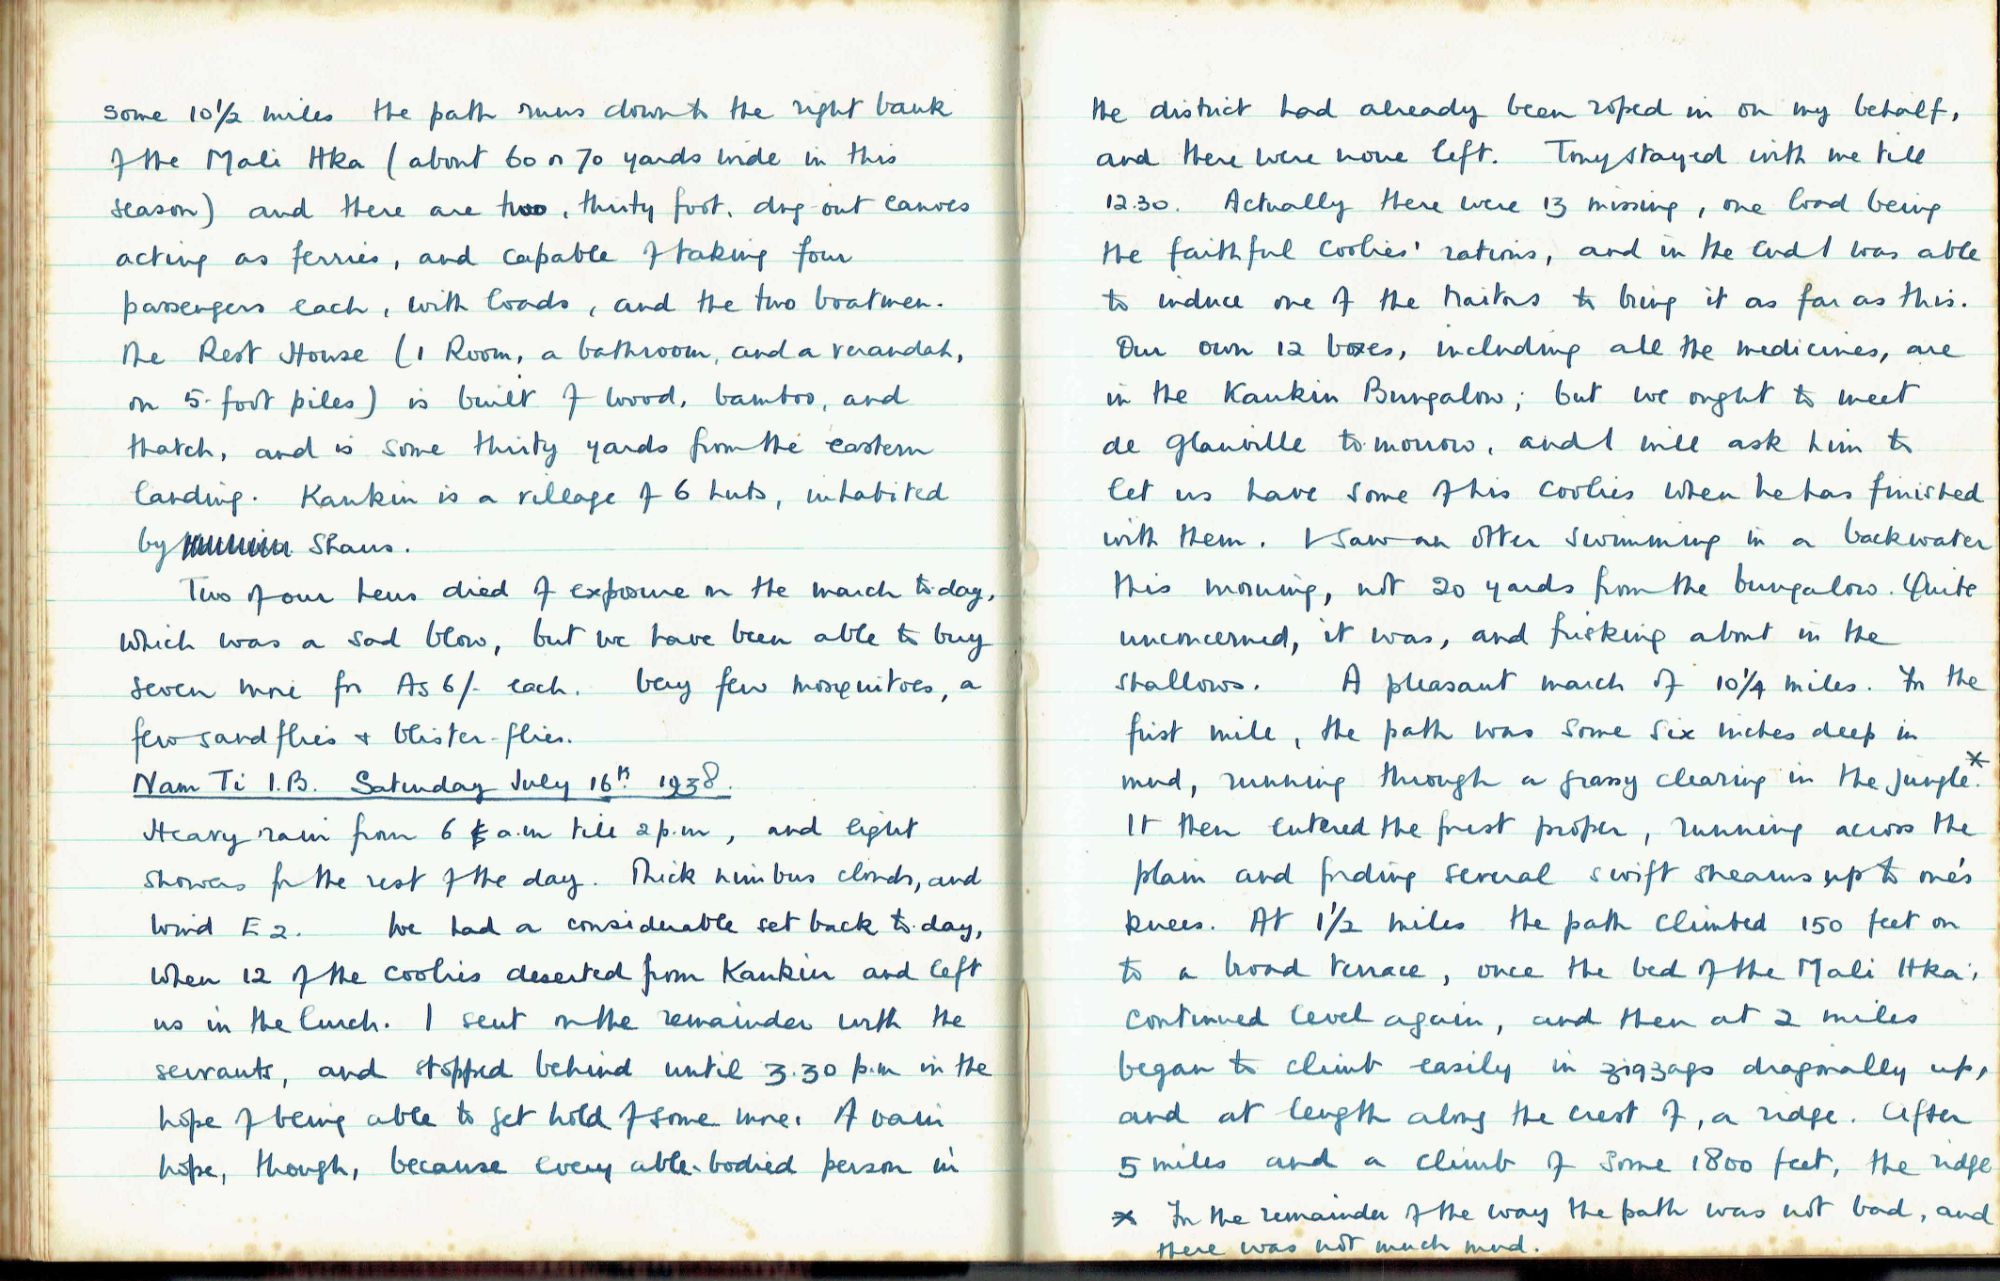 some 10½ miles the path runs down to the right bank
of the Mali Hka (about 60 or 70 yards wide in this
season) and there are two, thirty foot, dug-out canoes
acting as ferries, and capable of taking four
passengers each, with loads, and the two boatmen.
The Rest House (1 Room, a bathroom, and a verandah,
on 5-foot piles) is built of wood, bamboo, and
thatch, and is some thirty yards from the eastern
landing. Kankin is a village of 6 huts, inhabited
by Shans.
Two of our hens died of exposure on the march to-day,
which was a sad blow, but we have been able to buy
seven more for As 6/- each. Very few mosquitoes, a
few sandflies + blister-flies.
Nam Ti I.B. Saturday July 16th 1938.
Heavy rain from 6 a.m till 2 p.m, and light
showers for the rest of the day. Thick nimbus clouds, and
wind E 2. We had a considerable set back to-day,
when 12 of the coolies deserted from Kankin and left
us in the lurch. I sent on the remainder with the
servants, and stopped behind until 3.30 p.m in the
hope of being able to get hold of some more. A vain
hope, though, because every able-bodied person in
the district had already been roped in on my behalf,
and there were none left. Tony stayed with me till
12.30. Actually there were 13 missing, one load being
the faithful coolies' rations, and in the end I was able
to induce one of the traitors to bring it as far as this.
Our own 12 boxes, including all the medicines, are
in the Kankin Bungalow; but we ought to meet
de Glanville to-morrow, and I will ask him to
let us have some of his coolies when he has finished
with them. I saw an otter swimming in a backwater
this morning, not 20 yards from the bungalow. Quite
unconcerned, it was, and frisking about in the
shallows. A pleasant march of 10¼ miles. In the
first mile, the path was some six inches deep in
mud, running through a grassy clearing in the jungle.*
It then entered the forest proper, running across the
plain and fording several swift streams up to one's
knees. At 1½ miles the path climbed 150 feet on
to a broad terrace, once the bed of the Mali Hka;
continued level again, and then at 2 miles
began to climb easily in zigzags diagonally up,
and at length along the crest of, a ridge. After
5 miles and a climb of some 1800 feet, the ridge
* In the remainder of the way the path was not bad, and
there was not much mud.